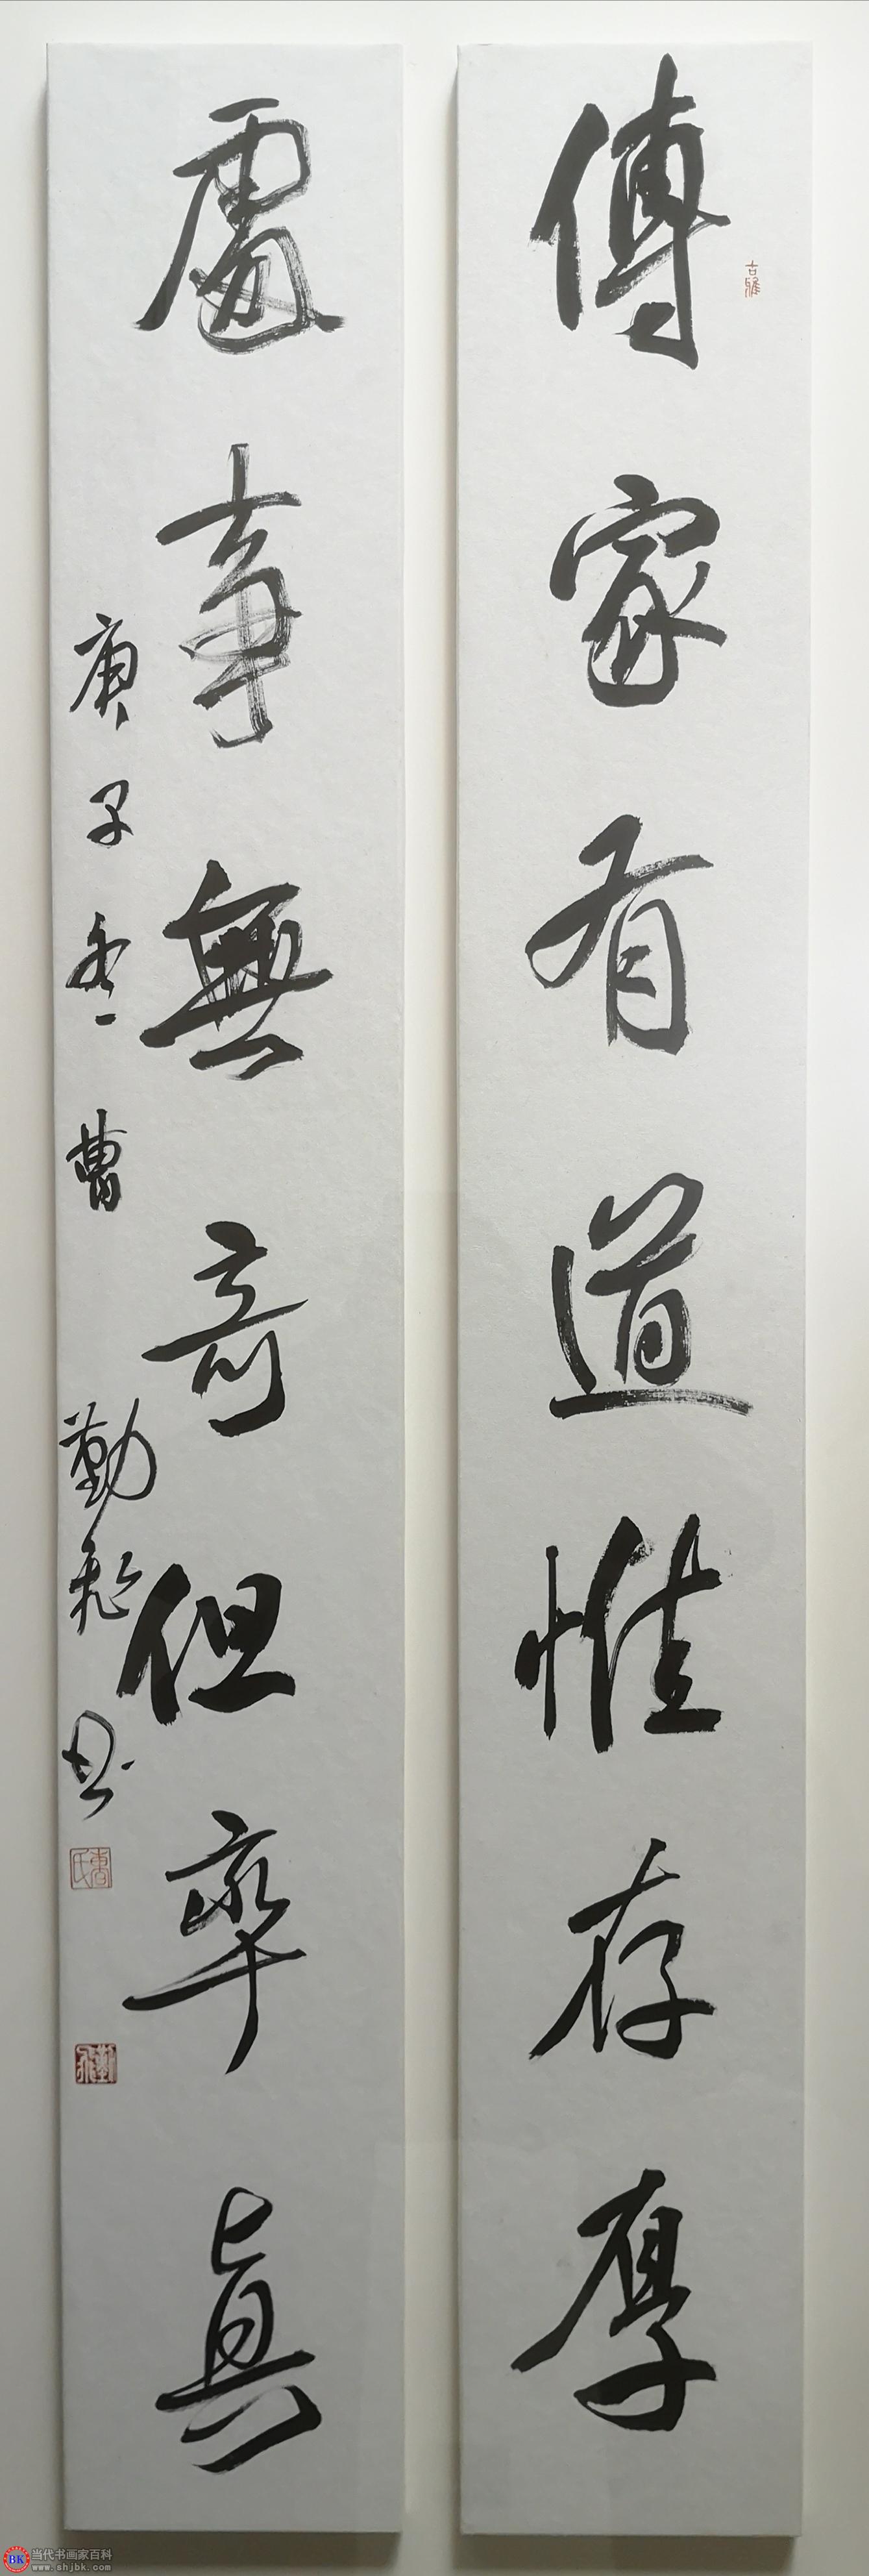 傳家有道惟存厚
處事無奇但率真
庚子冬 曹勤飛书
古雅
曹氏
當代书画家百科
www.shjbk.com